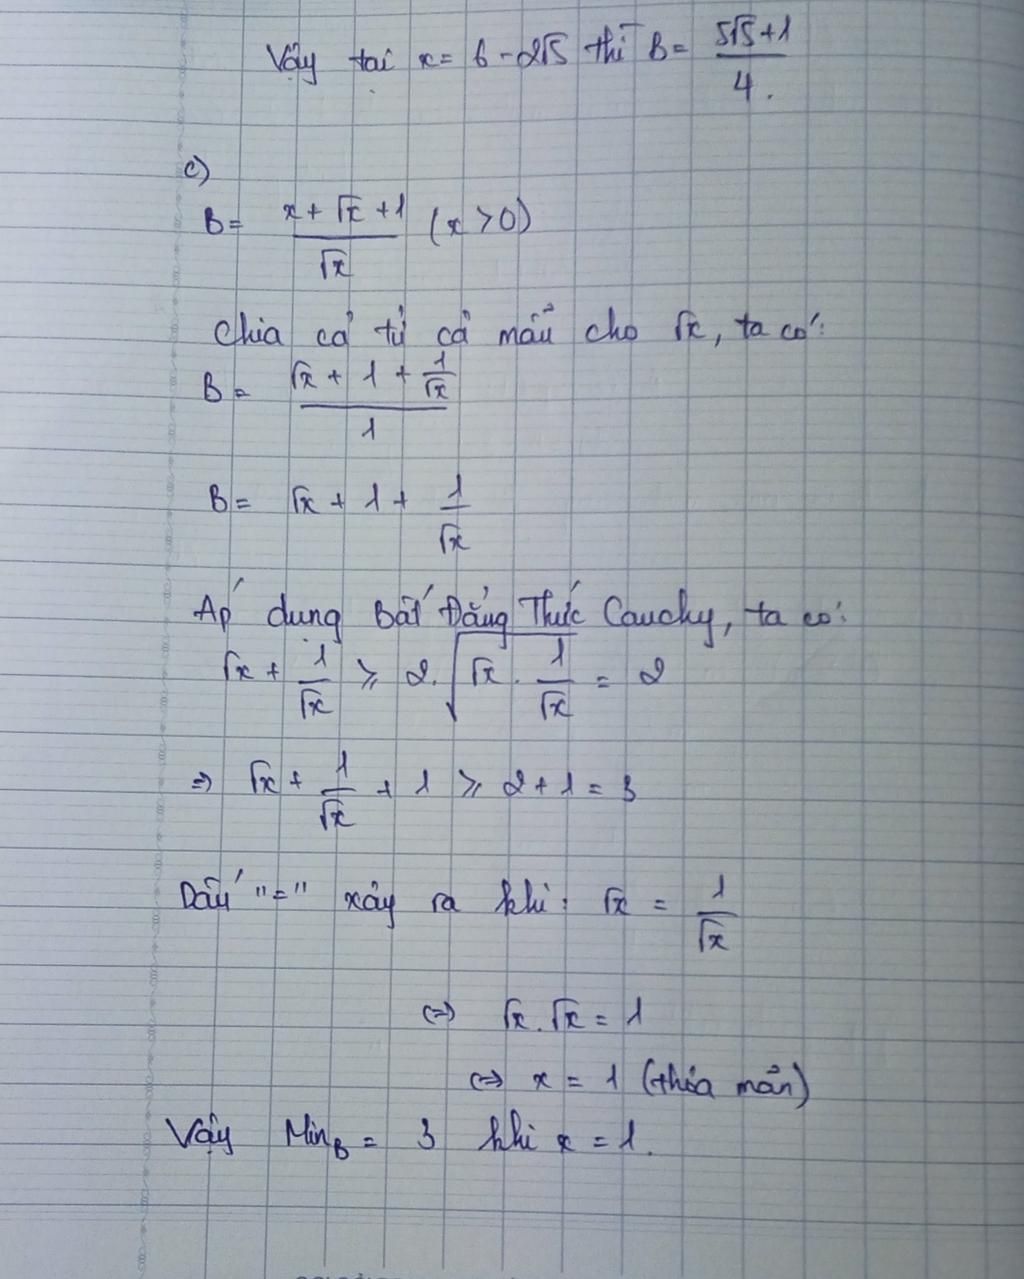 Vậy tại x = 6 - 2√5 thì B = (5√5 + 1)/4.
c)
B = (x + √x + 1)/√x (x > 0)
Chia cả tử cả mẫu cho √x, ta có:
B = (√x + 1 + 1/√x)/1
B = √x + 1 + 1/√x
Áp dụng Bất Đẳng Thức Cauchy, ta có:
√x + 1/√x ⩾ 2.√(√x . 1/√x) = 2
⇒ √x + 1/√x + 1 ⩾ 2 + 1 = 3
Dấu "=" xảy ra khi: √x = 1/√x
⇔ √x . √x = 1
⇔ x = 1 (thỏa mãn)
Vậy Min_B = 3 khi x = 1.